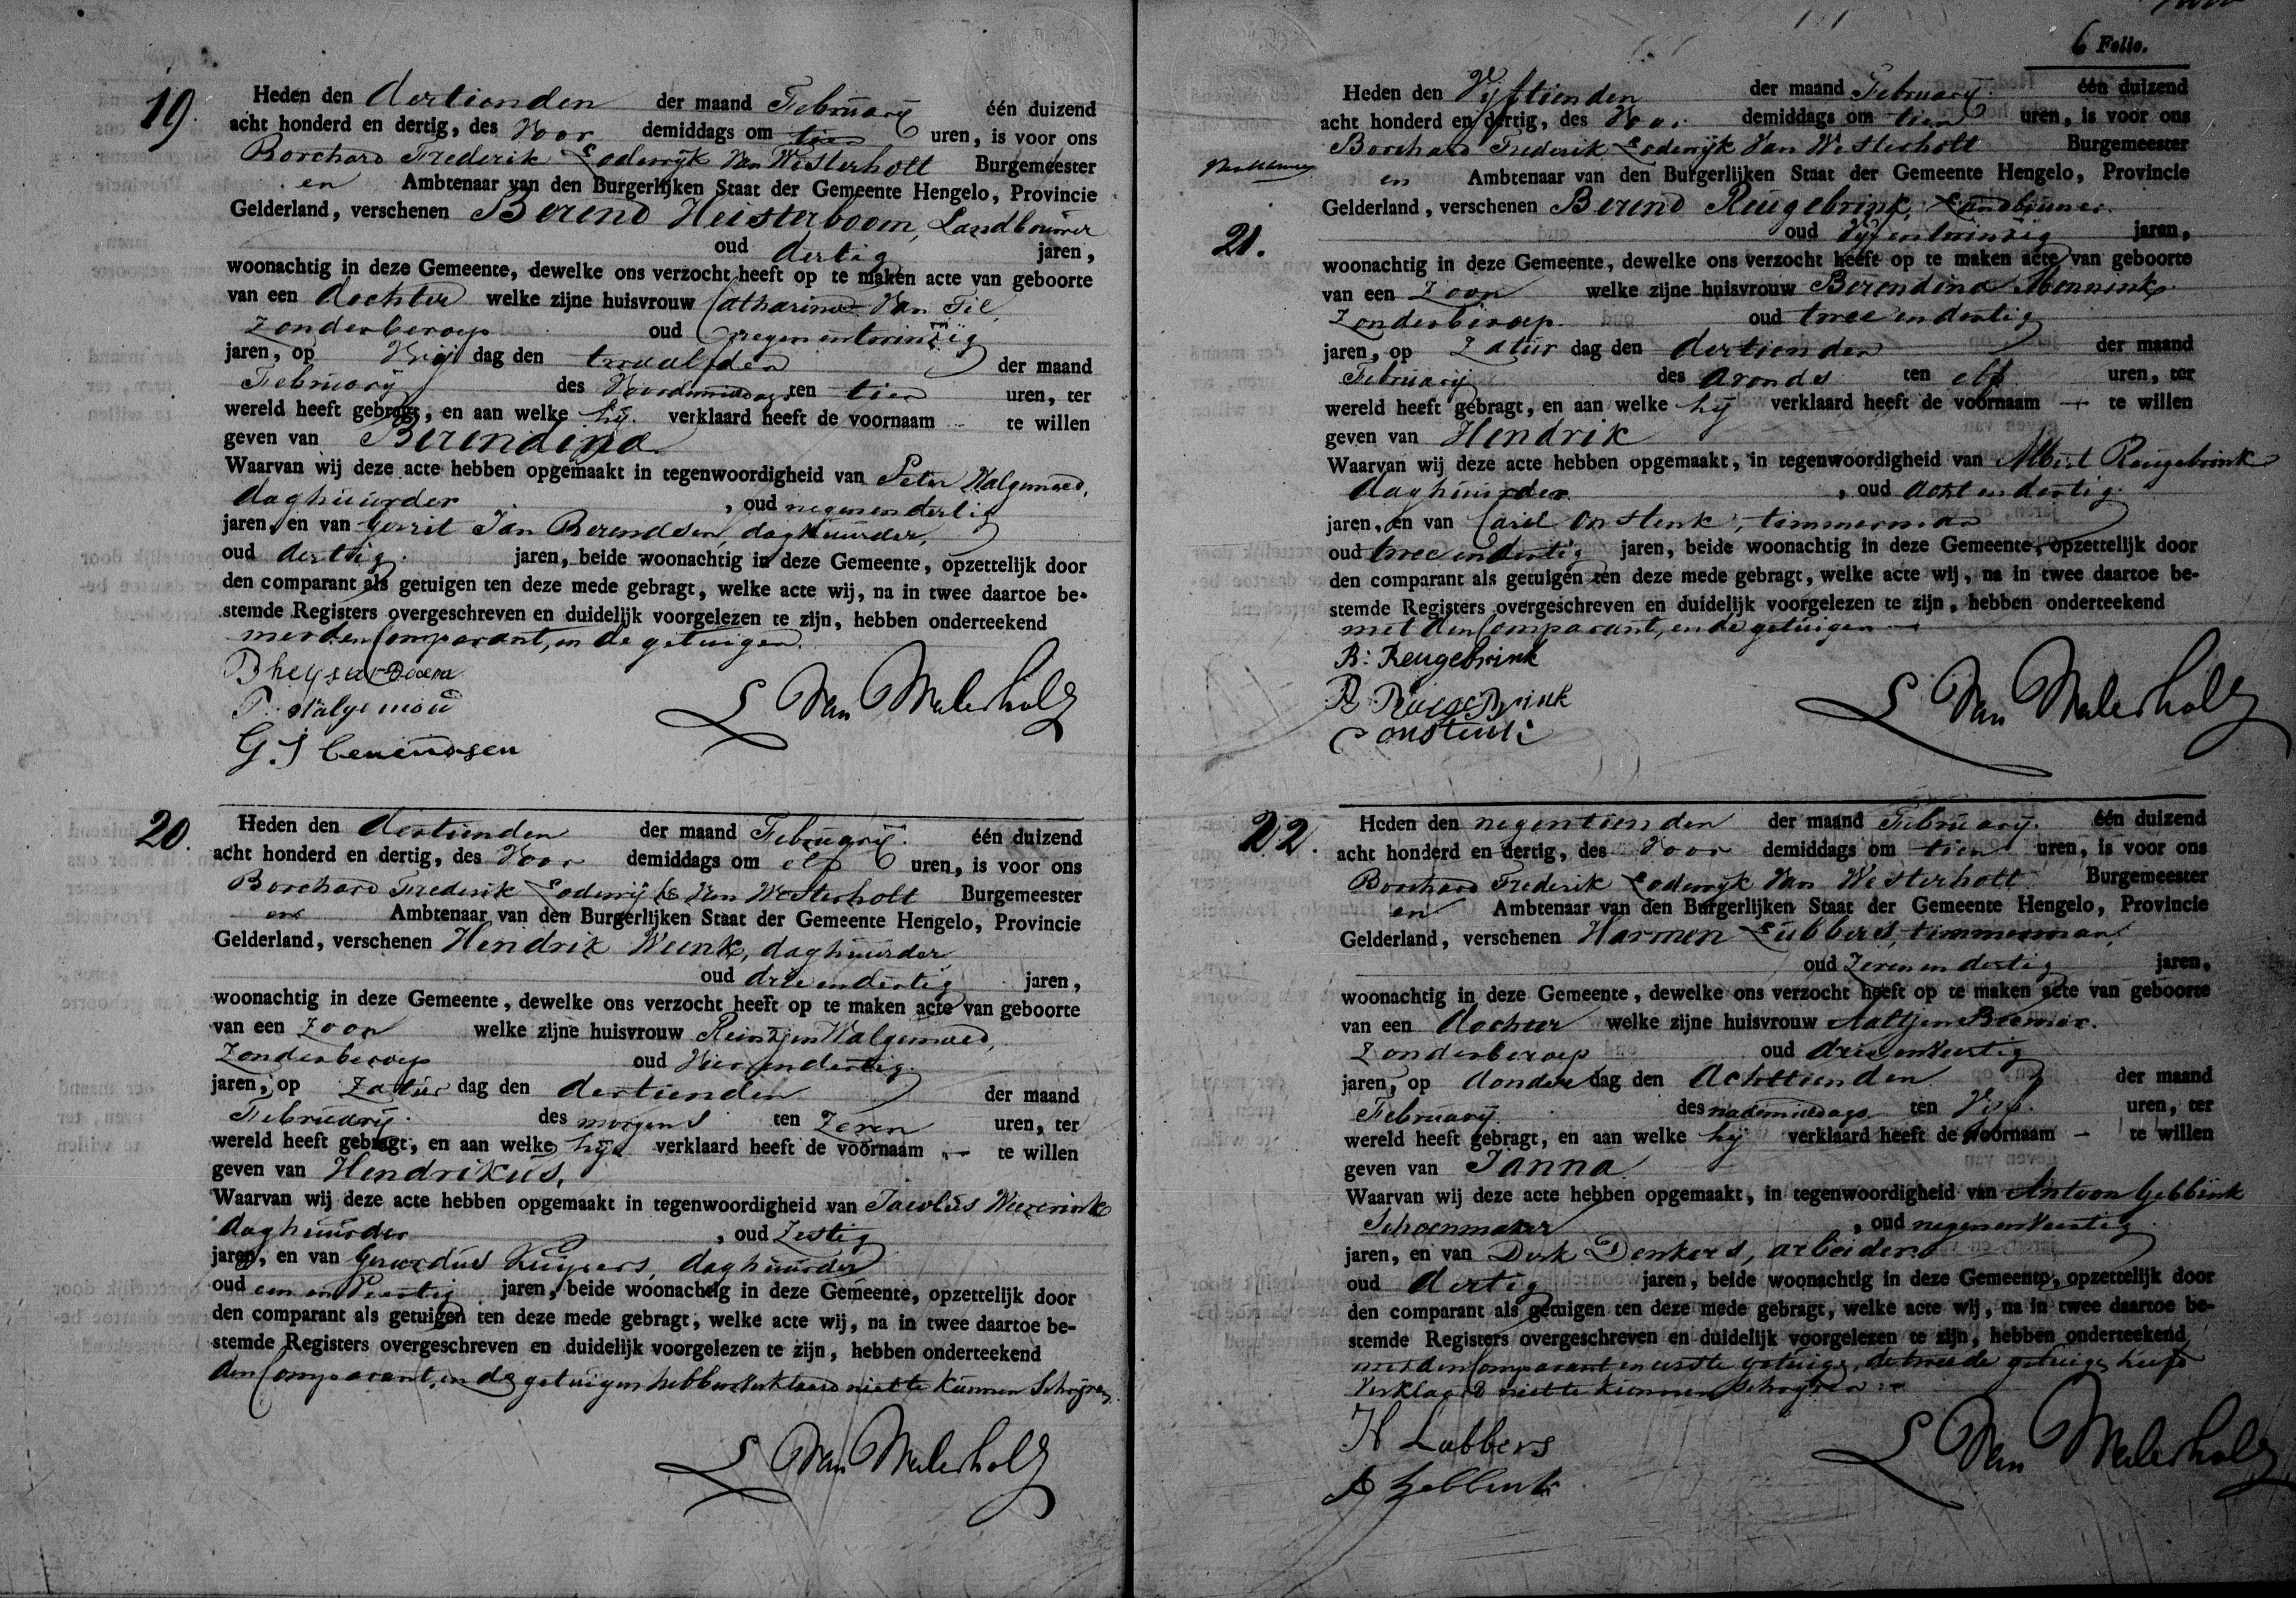 19.
Heden den dertienden der maand February één duizend
acht honderd en dertig, des Voor demiddags om tien uren, is voor ons
Borchard Frederik Lodewyk Van Westerholt Burgemeester
en Ambtenaar van den Burgerlijken Staat der Gemeente Hengelo, Provincie
Gelderland, verschenen Berend Heisterboom, Landbouwer
oud dertig jaren,
woonachtig in deze Gemeente, dewelke ons verzocht heeft op te maken acte van geboorte
van een dochter welke zijne huisvrouw Catharina Van Til,
Zonderberoep oud negenentwintig
jaren, op Vrij dag den twaalfden der maand
February des Voordemiddags ten tien uren, ter
wereld heeft gebragt, en aan welke hij verklaard heeft de voornaam te willen
geven van Berendina.
Waarvan wij deze acte hebben opgemaakt in tegenwoordigheid van Peter Walgemoed,
daghuurder, oud negenendertig
jaren, en van Gerrit Jan Berendsen, daghuurder,
oud dertig jaren, beide woonachtig in deze Gemeente, opzettelijk door
den comparant als getuigen ten deze mede gebragt, welke acte wij, na in twee daartoe be-
stemde Registers overgeschreven en duidelijk voorgelezen te zijn, hebben onderteekend
met den Comparant, en de getuigen.
P. Walgemoed
G. J Berendsen
20.
Heden den dertienden der maand February één duizend
acht honderd en dertig, des Voor demiddags om elf uren, is voor ons
Borchard Frederik Lodewijk Van Westerholt Burgemeester
en Ambtenaar van den Burgerlijken Staat der Gemeente Hengelo, Provincie
Gelderland, verschenen Hendrik Weenk, daghuurder
oud drie endertig jaren,
woonachtig in deze Gemeente, dewelke ons verzocht heeft op te maken acte van geboorte
van een Zoon welke zijne huisvrouw Reintjen Walgemoed,
Zonderberoep oud Vier endertig
jaren, op Zatur dag den dertienden der maand
February des morgens ten Zeven uren, ter
wereld heeft gebragt, en aan welke hij verklaard heeft de voornaam — te willen
geven van Hendrikus,
Waarvan wij deze acte hebben opgemaakt in tegenwoordigheid van Jacobus
daghuurder, oud Zestig
jaren, en van Gerardus Kuipers, daghuurder
oud jaren, beide woonachtig in deze Gemeente, opzettelijk door
den comparant als getuigen ten deze mede gebragt, welke acte wij, na in twee daartoe be-
stemde Registers overgeschreven en duidelijk voorgelezen te zijn, hebben onderteekend
den Comparant, en de getuigen hebben verklaard niet te kunnen Schrijven
6 Folio.
21.
Heden den Vyftienden der maand February één duizend
acht honderd en dertig, des Voor demiddags om tien uren, is voor ons
Borchard Frederik Lodewijk Van Westerholt Burgemeester
en Ambtenaar van den Burgerlijken Staat der Gemeente Hengelo, Provincie
Gelderland, verschenen Berend Reugebrink, Landbouwer
oud Vijf entwintig jaren,
woonachtig in deze Gemeente, dewelke ons verzocht heeft op te maken acte van geboorte
van een Zoon welke zijne huisvrouw Berendina Mennink
Zonderberoep. oud twee endertig
jaren, op Zatur dag den dertienden der maand
February des avonds ten elf uren, ter
wereld heeft gebragt, en aan welke hij verklaard heeft de voornaam — te willen
geven van Hendrik
Waarvan wij deze acte hebben opgemaakt, in tegenwoordigheid van Albert Reugebrink
daghuurder, oud acht endertig
jaren, en van Carel Onstenk, timmerman
oud twee endertig jaren, beide woonachtig in deze Gemeente, opzettelijk door
den comparant als getuigen ten deze mede gebragt, welke acte wij, na in twee daartoe be-
stemde Registers overgeschreven en duidelijk voorgelezen te zijn, hebben onderteekend
met den Comparant, en de getuigen —
B: Reugebrink
22.
Heden den negentienden der maand February. één duizend
acht honderd en dertig, des Voor demiddags om tien uren, is voor ons
Borchard Frederik Lodewyk Van Westerholt Burgemeester
en Ambtenaar van den Burgerlijken Staat der Gemeente Hengelo, Provincie
Gelderland, verschenen Harmen Lubbers, timmerman,
oud Zeven en dertig jaren,
woonachtig in deze Gemeente, dewelke ons verzocht heeft op te maken acte van geboorte
van een dochter welke zijne huisvrouw Aaltjen
Zonderberoep oud drie enveertig
jaren, op donder dag den Achttienden der maand
February. des nademiddags ten Vyf. uren, ter
wereld heeft gebragt, en aan welke hij verklaard heeft de voornaam — te willen
geven van Janna
Waarvan wij deze acte hebben opgemaakt, in tegenwoordigheid van Antoon Gebbink
Schoenmaker, oud negenenveertig
jaren, en van Derk Denkers, arbeider
oud dertig jaren, beide woonachtig in deze Gemeente, opzettelijk door
den comparant als getuigen ten deze mede gebragt, welke acte wij, na in twee daartoe be-
stemde Registers overgeschreven en duidelijk voorgelezen te zijn, hebben onderteekend
met den Comparant en eerste getuige, de tweede getuige heeft
Verklaard niet te kunnen Schryven.
H Lubbers
A Gebbink